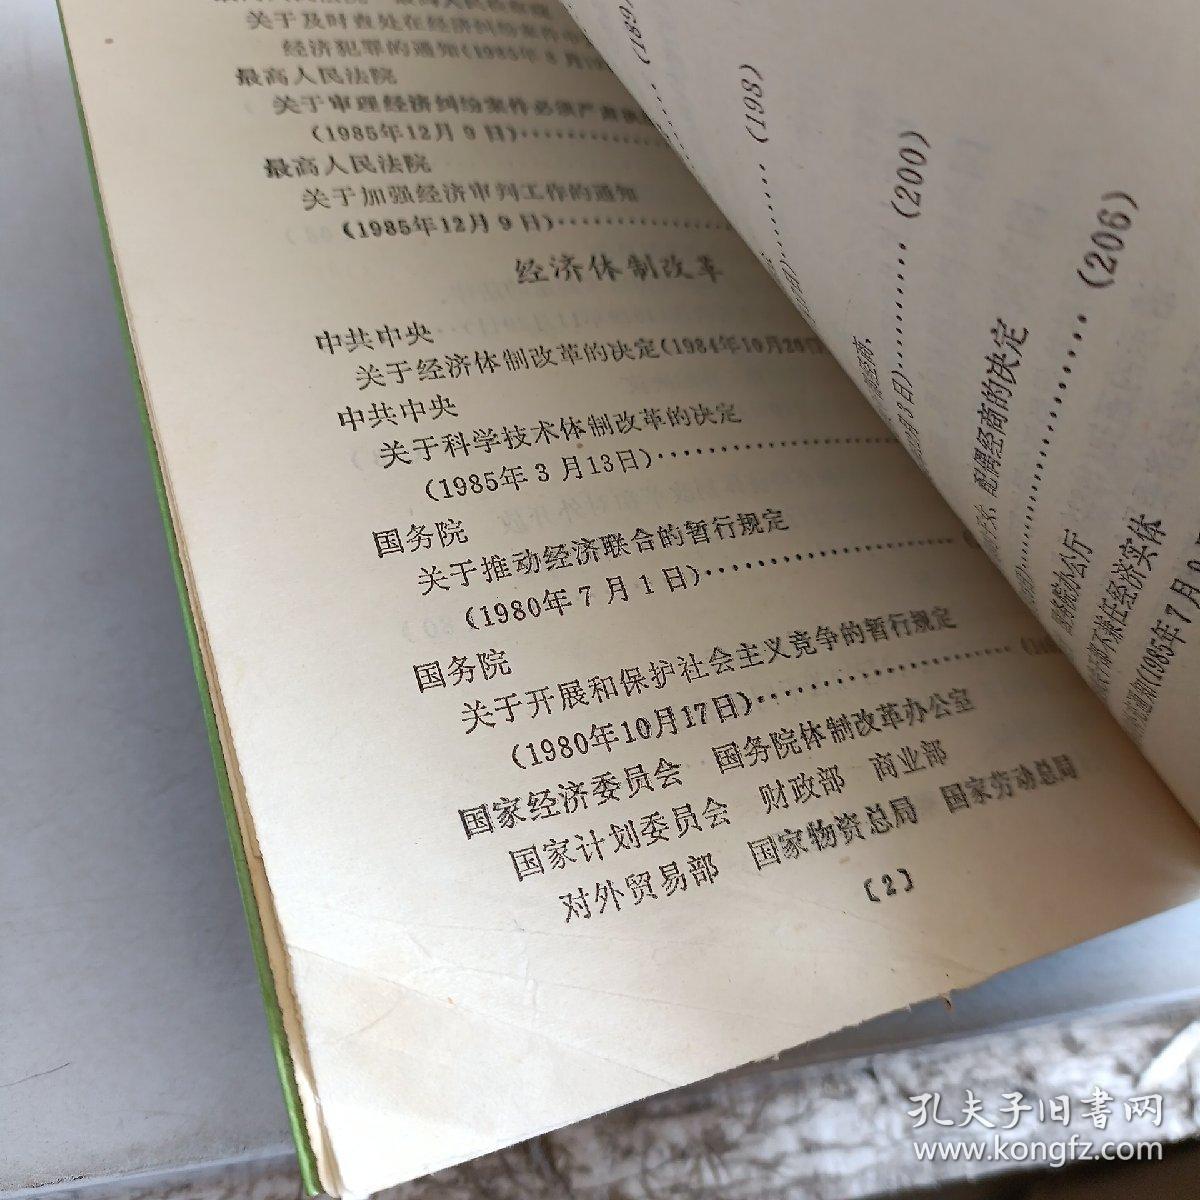 关于及时查处在经济纠纷案件中
经济犯罪的通知(1985年8月
最高人民法院
关于审理经济纠纷案件必须严肃执
(1985年12月9日)
最高人民法院
关于加强经济审判工作的通知
(1985年12月9日)
经济体制改革
中共中央
关于经济体制改革的决定(1984年10月20日)
中共中央
关于科学技术体制改革的决定
(1985年3月13日)
国务院
关于推动经济联合的暂行规定
(1980年7月1日)
国务院
关于开展和保护社会主义竞争的暂行规定
(1980年10月17日)
国家经济委员会 国务院体制改革办公室
国家计划委员会 财政部 商业部
对外贸易部 国家物资总局 国家劳动总局
〔2〕
(189)
(198)
(200)
子女、配偶经商的决定
(206)
国务院办公厅
干部不兼任经济实体
(1985年7月9
孔夫子旧书网
www.kongfz.com